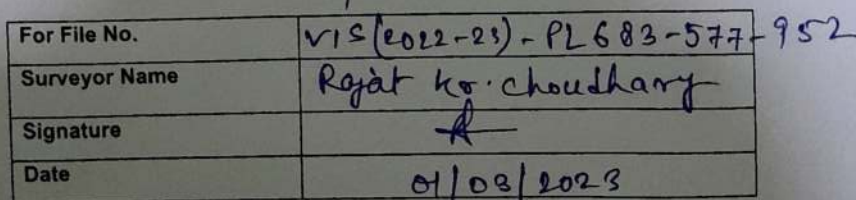 For File No. VIS(2022-23)-PL683-577-952
Surveyor Name Rajat kr. choudhary
Signature
Date 01/03/2023